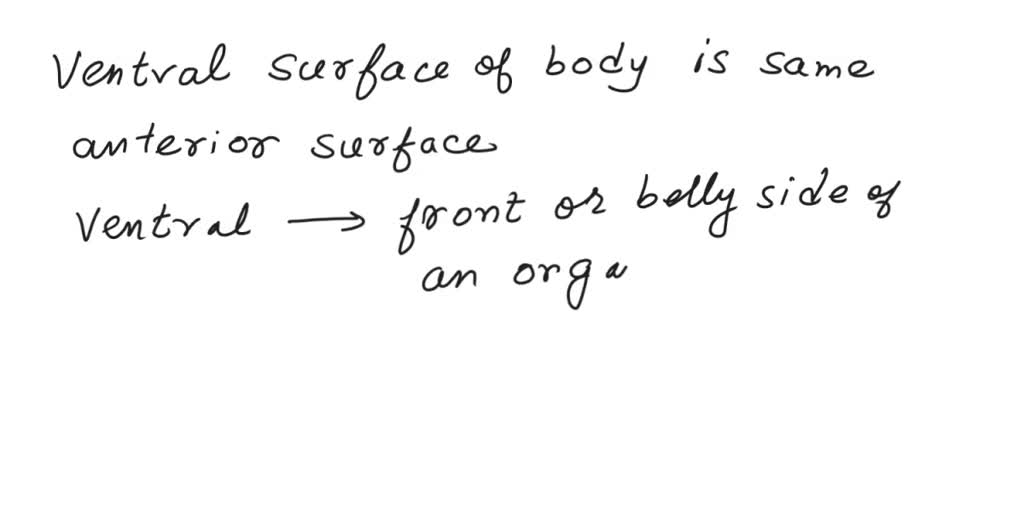 Ventral surface of body is same
anterior surface
Ventral → front or belly side of
an orga